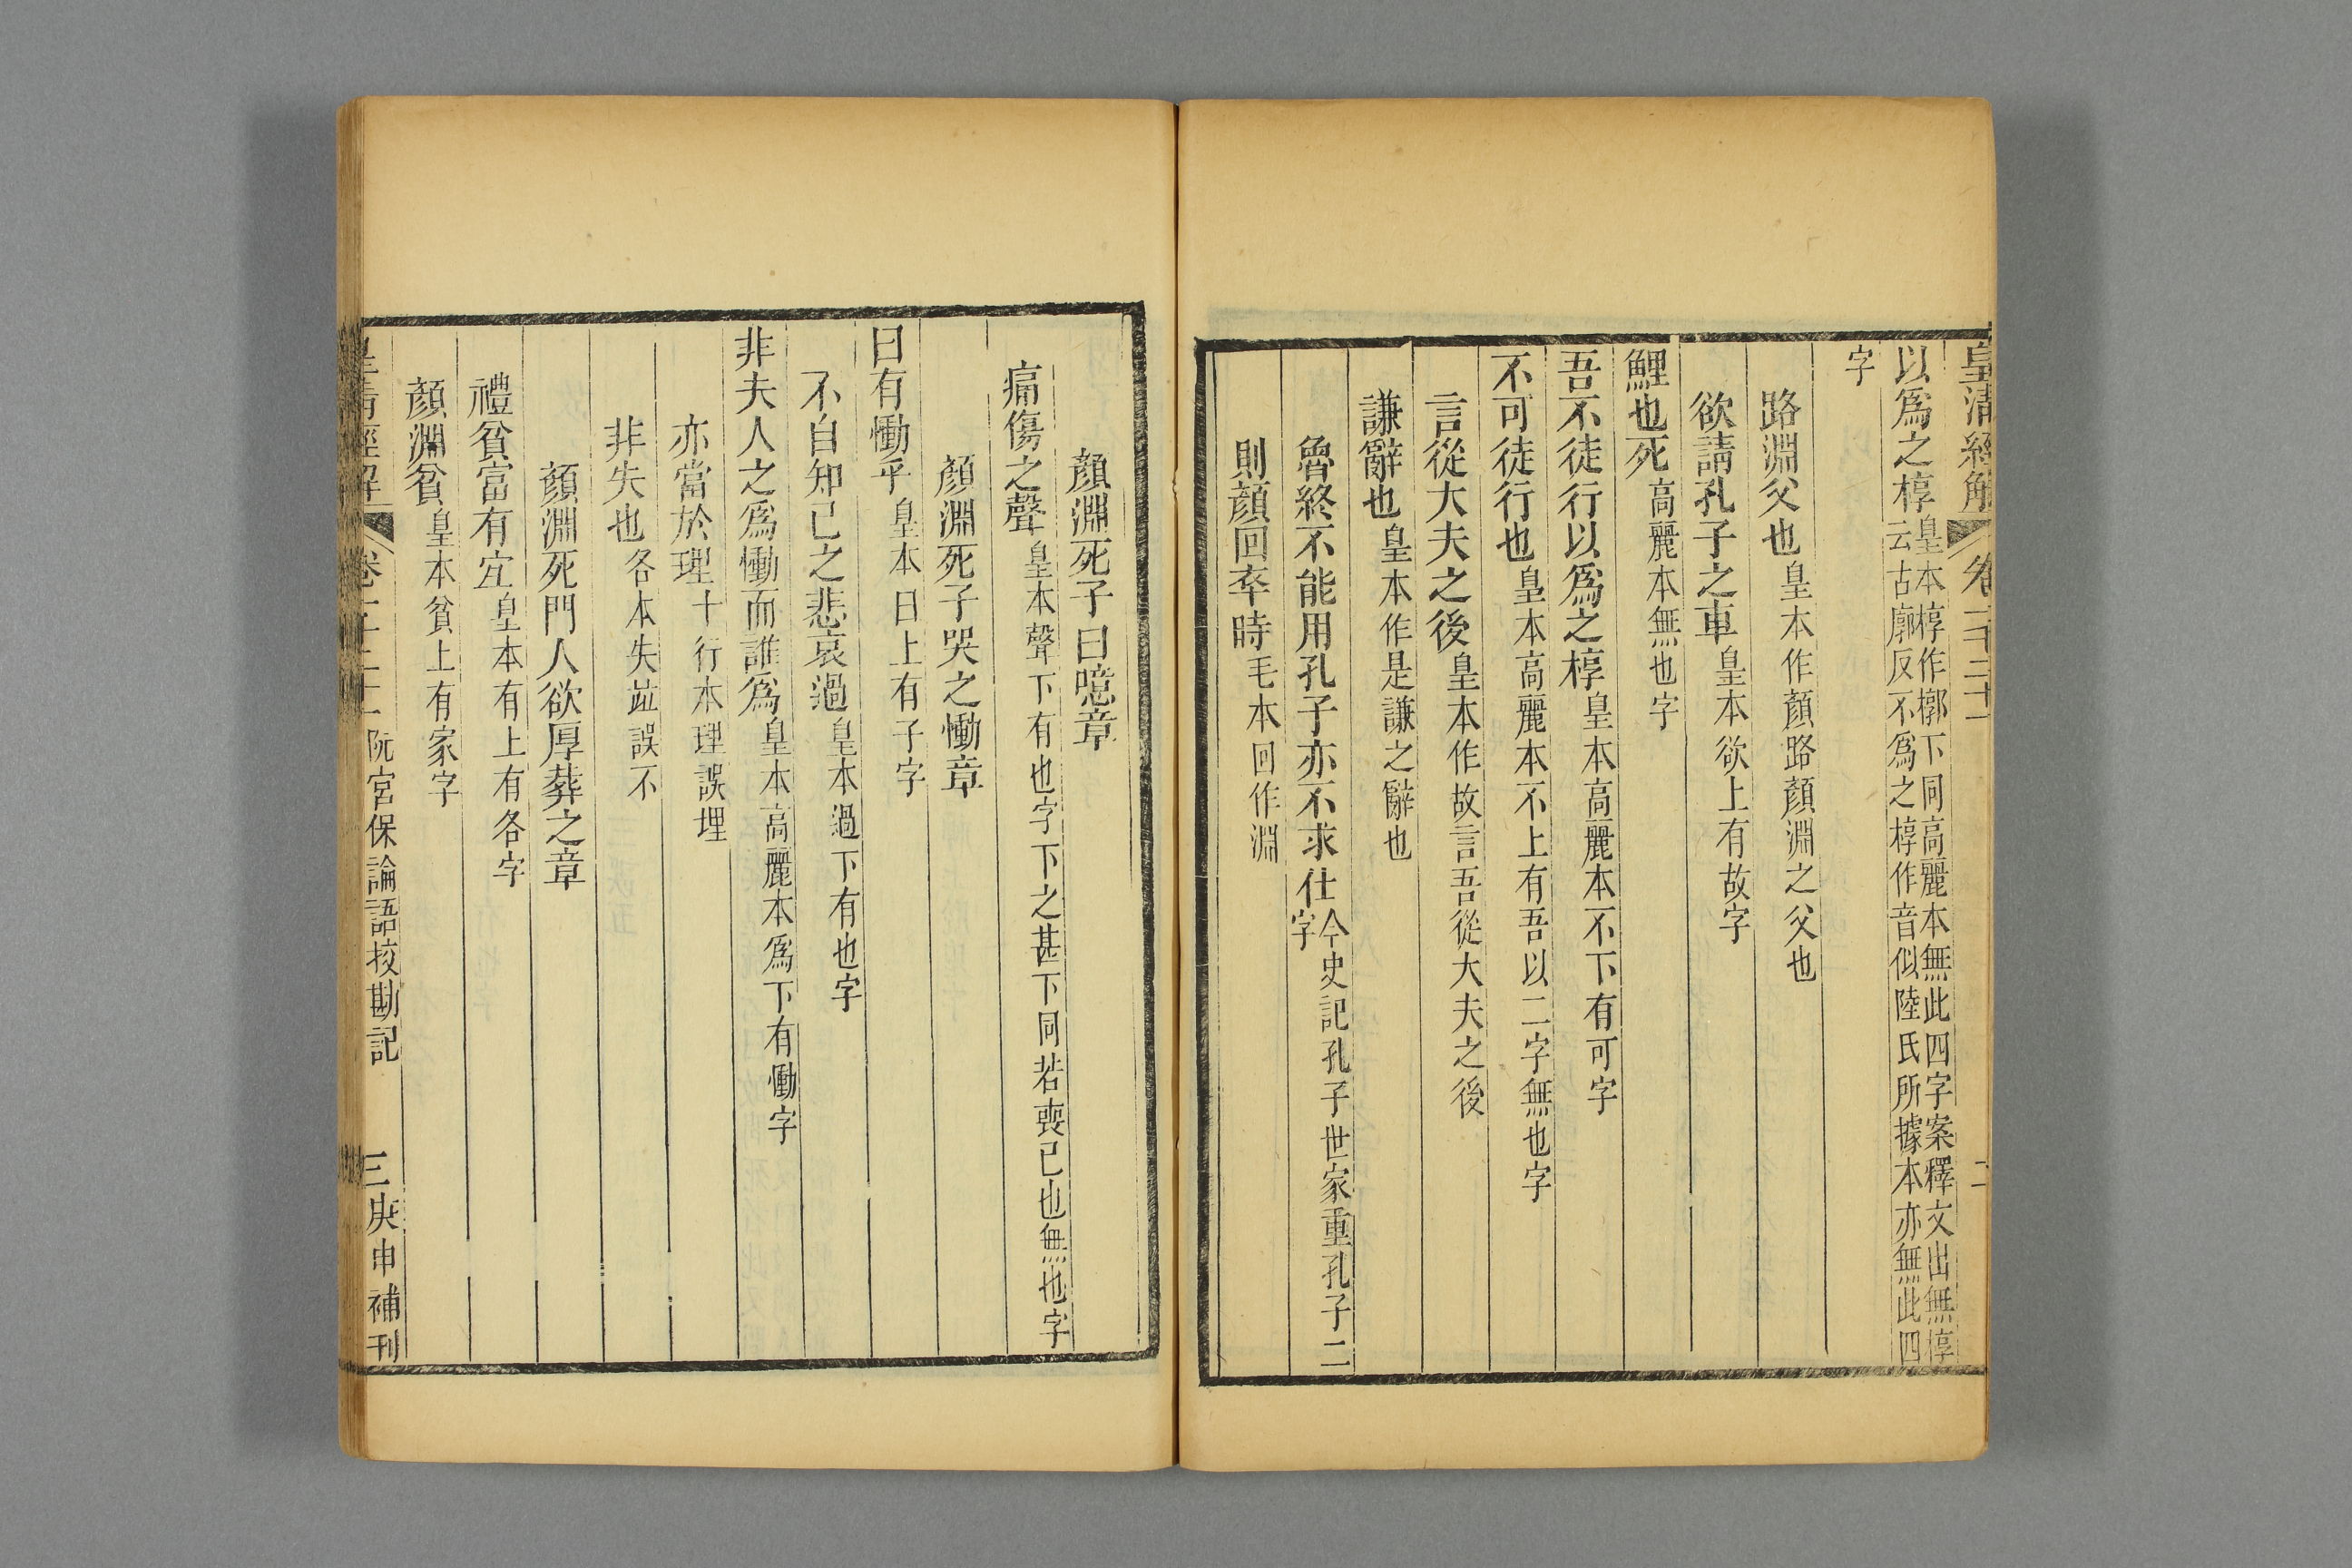 皇清經解
卷一千二十一
二
以爲之椁皇本椁作槨下同高麗本無此四字案釋文出無椁
云古廓反不爲之椁作音似陸氏所據本亦無此四
字
路淵父也皇本作顏路顏淵之父也
欲請孔子之車皇本欲上有故字
鯉也死高麗本無也字
吾不徒行以爲之椁皇本高麗本不下有可字
不可徒行也皇本高麗本不上有吾以二字無也字
言從大夫之後皇本作故言吾從大夫之後
謙辭也皇本作是謙之辭也
魯終不能用孔子亦不求仕今史記孔子世家重孔子二
字
則顏回卒時毛本回作淵
顏淵死子曰噫章
痛傷之聲皇本聲下有也字下之甚下同若喪己也無也字
顏淵死子哭之慟章
曰有慟乎皇本曰上有子字
不自知己之悲哀過皇本過下有也字
非夫人之爲慟而誰爲皇本高麗本爲下有慟字
亦當於理十行本理誤埋
非失也各本失竝誤不
顏淵死門人欲厚葬之章
禮貧富有宜皇本有上有各字
顏淵貧皇本貧上有家字
皇清經解
卷一千二十一
阮宮保論語挍勘記
三
庚申補刊